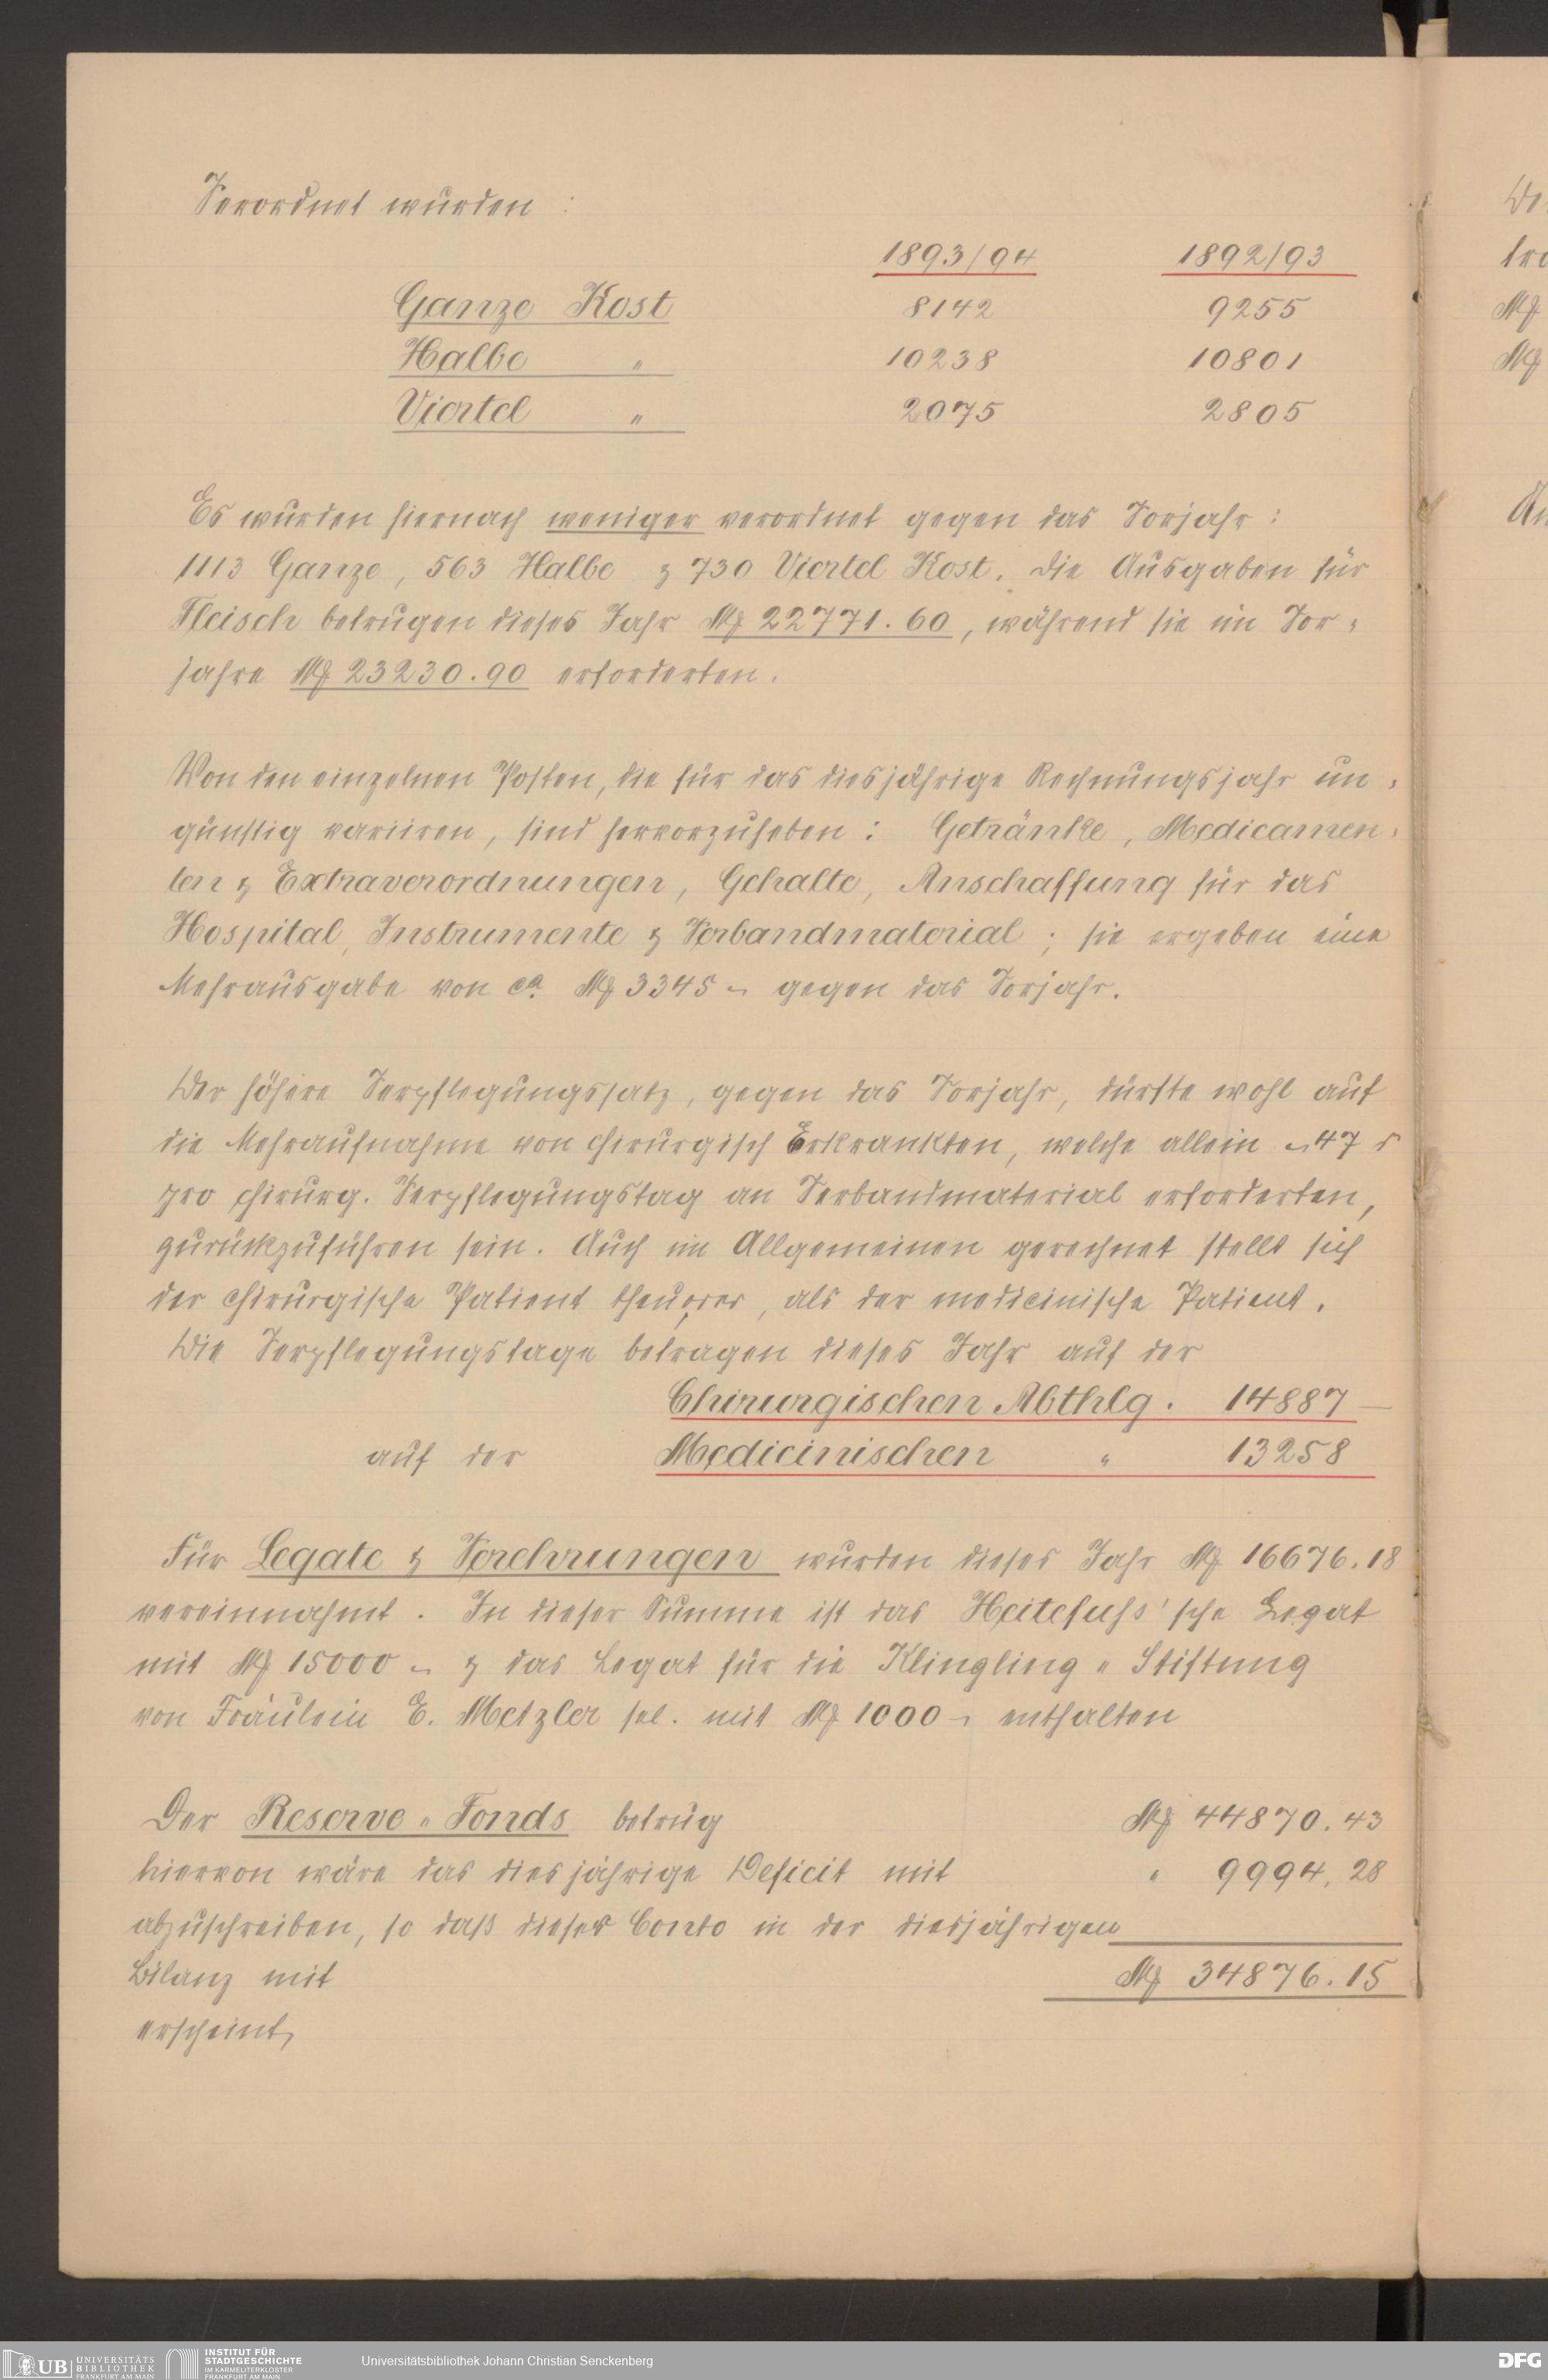 Verordnet wurden :
1893/94 1892/93
Ganze Kost 8142 9255
Halbe " 10238 10801
Viertel " 2075 2805
Es wurden hiernach weniger verordnet gegen das Vorjahr :
1113 Ganze, 563 Halbe & 730 Viertel Kost. Die Ausgaben für
Fleisch betrugen dieses Jahr M 22771.60, während sie im Vor-
jahre M 23230.90 erforderten.
Von den einzelnen Posten, die für das diesjährige Rechnungsjahr un-
günstig variiren, sind hervorzuheben : Getränke, Medicamen-
ten & Extraverordnungen, Gehalte, Anschaffung für das
Hospital, Instrumente & Verbandmaterial ; sie ergeben eine
Mehrausgabe von ca. M 3345 - gegen das Vorjahr.
Der höhere Verpflegungssatz, gegen das Vorjahr, dürfte wohl auf
die Mehraufnahme von chirurgisch Erkrankten, welche allein - 47 ₰
pro chirurg. Verpflegungstag an Verbandmaterial erforderten,
zurückzuführen sein. Auch im Allgemeinen gerechnet stellt sich
der chirurgische Patient theuerer, als der medicinische Patient.
Die Verpflegungstage betragen dieses Jahr auf der
Chirurgischen Abthlg. 14887 -
auf der Medicinischen " 13258
Für Legate & Verehrungen wurden dieses Jahr M 16676.18
vereinnahmt. In dieser Summe ist das Heitefuss'sche Legat
mit M 15000 - & das Legat für die Klingling - Stiftung
von Fräulein E. Metzler sel. mit M 1000 - enthalten
Der Reserve - Fonds betrug M 44870.43
hiervon wäre das diesjährige Deficit mit " 9994.28
abzuschreiben, so daß dieses Conto in der diesjährigen
Bilanz mit M 34876.15
erscheint,
De
tro
M
M
An
UB UNIVERSITÄTS
BIBLIOTHEK
FRANKFURT AM MAIN
INSTITUT FÜR
STADTGESCHICHTE
IM KARMELITERKLOSTER
FRANKFURT AM MAIN
Universitätsbibliothek Johann Christian Senckenberg
DFG